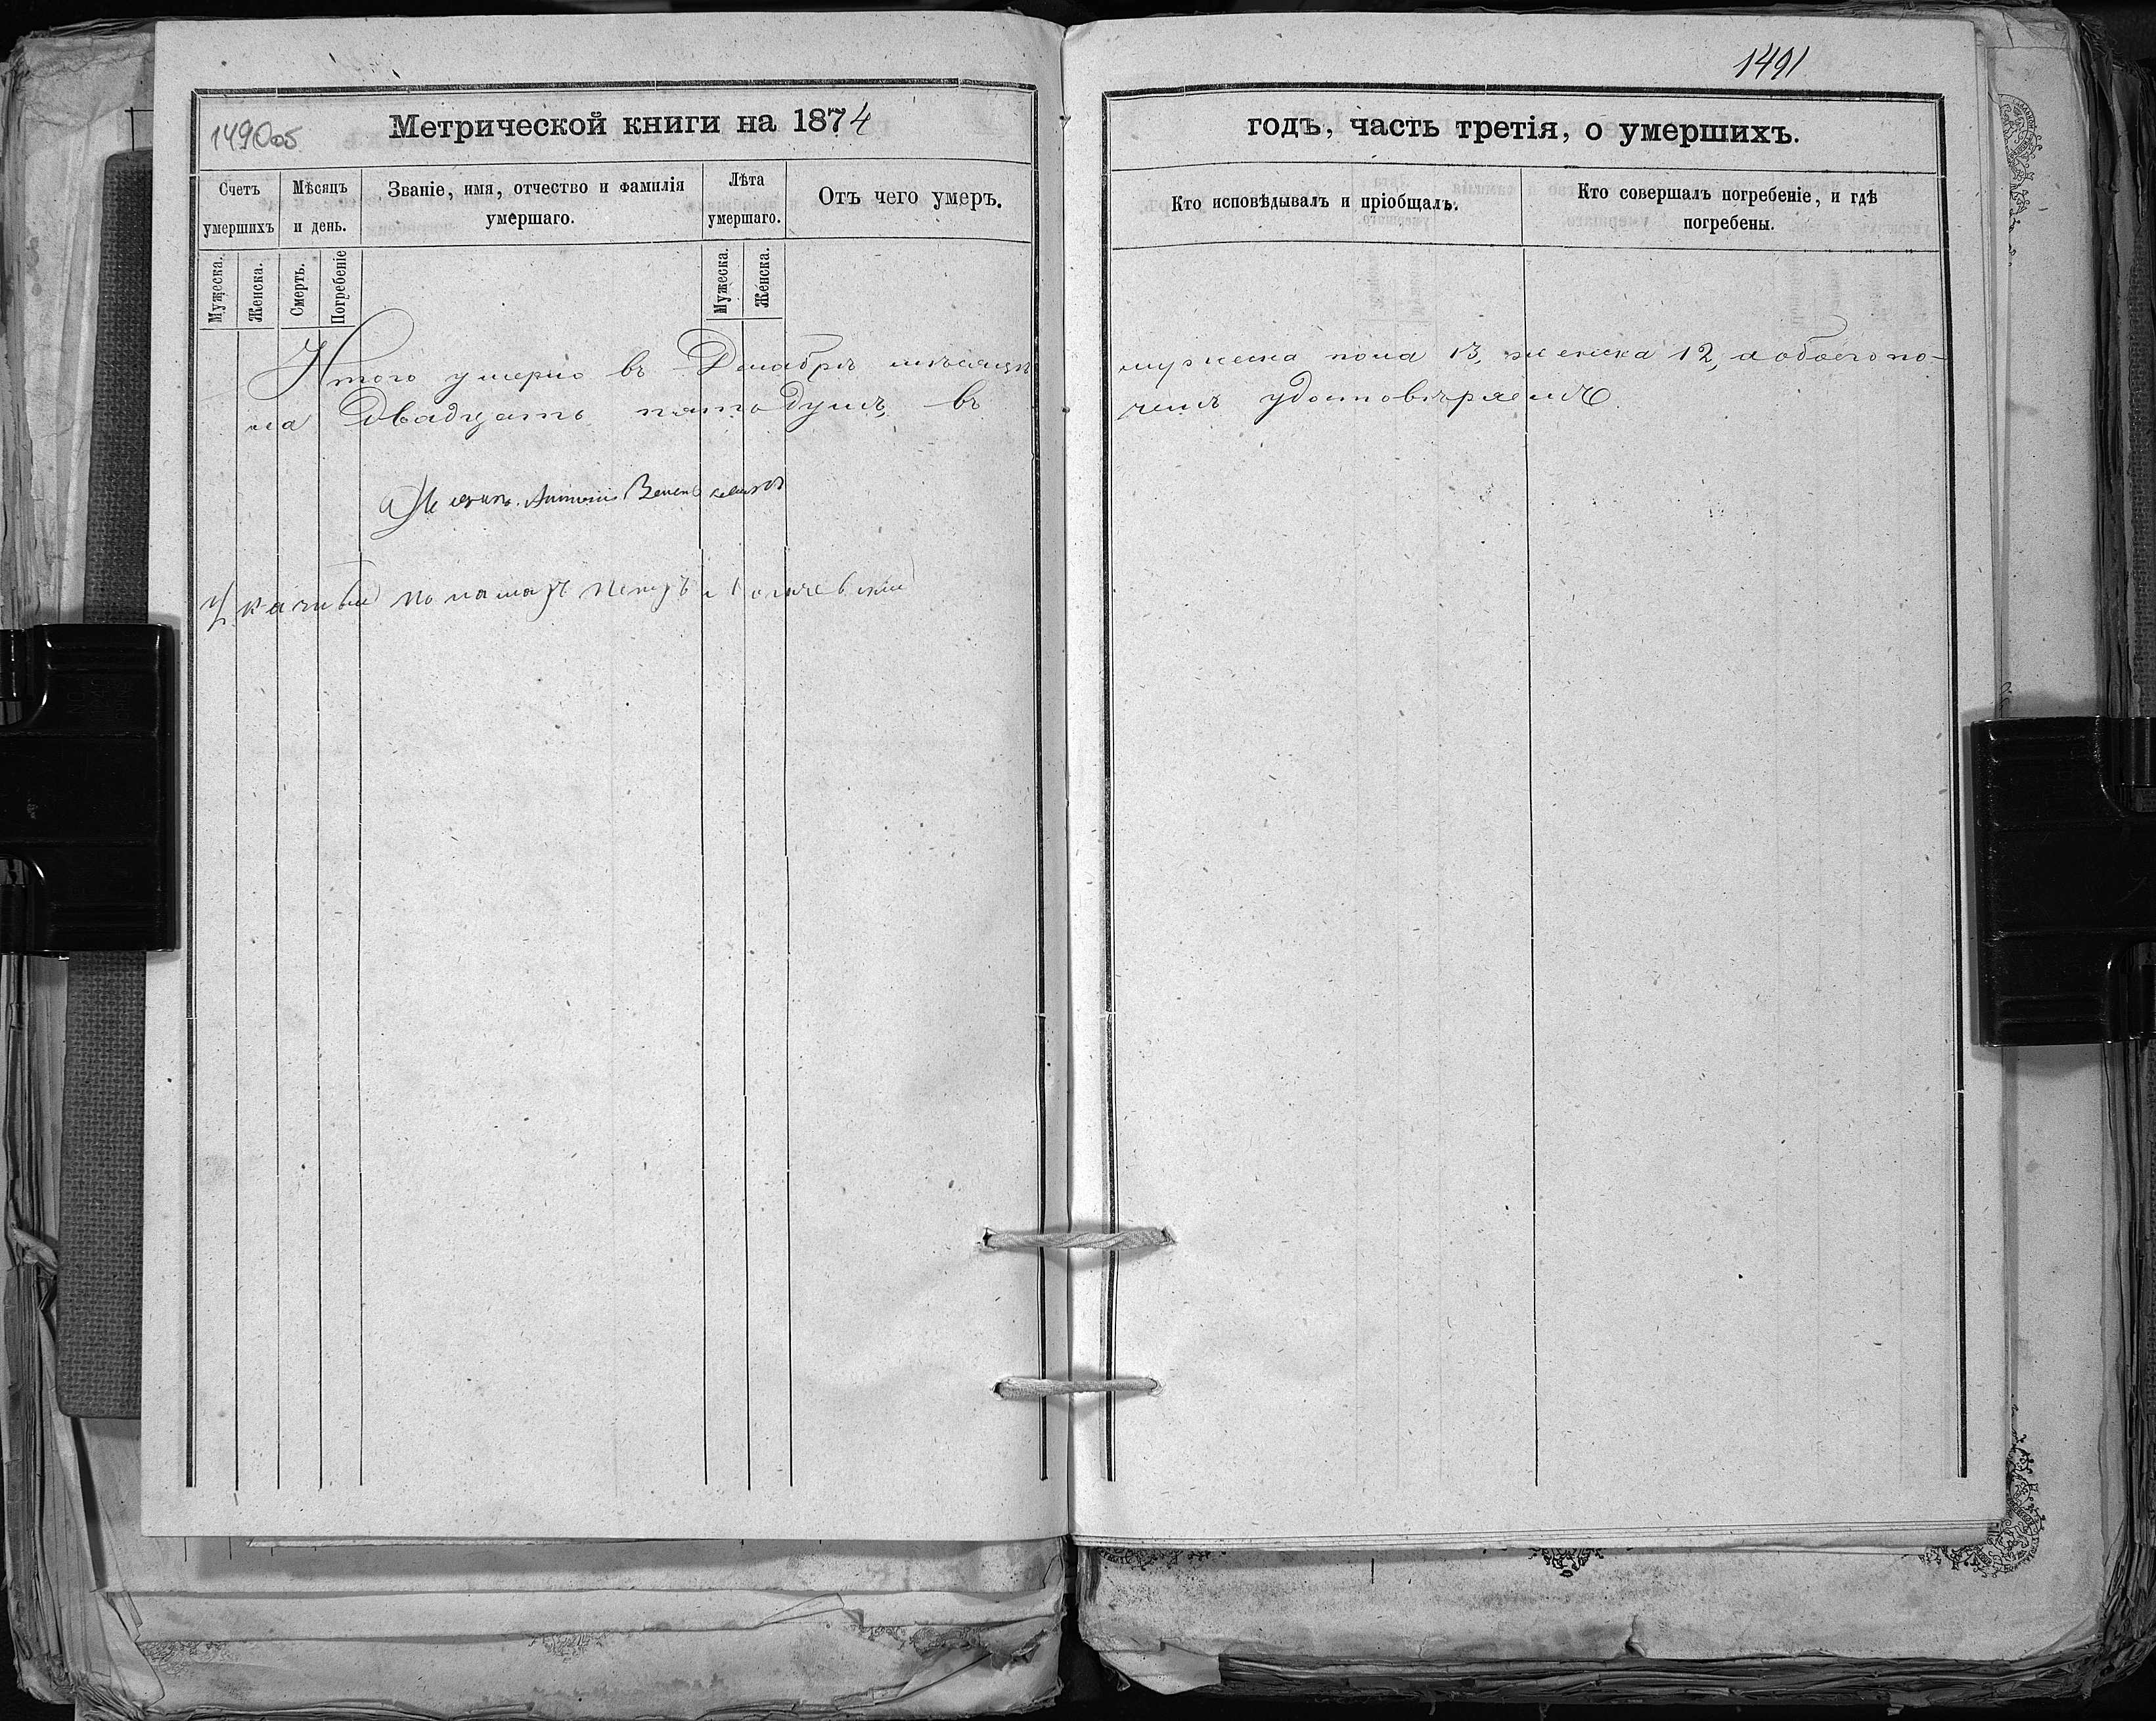 149Oоб
Метрической книги на 1874
Счетъ
умершихъ
Мѣсяцъ
и день.
Званіе, имя, отчество и фамилія
умершаго.
Лѣта
умершаго.
Отъ чего умеръ.
Мужеска.
Женска.
Смерть.
Погребеніе
Мужеска.
Женска.
Итого умерло въ Декабрѣ мѣсяцѣ
ла Двадцать пять душъ, въ
Антоній
пономарь Петръ
1491
годъ, часть третія, о умершихъ.
Кто исповѣдывалъ и пріобщалъ.
Кто совершалъ погребеніе, и гдѣ
погребены.
мужеска пола 13, женска 12, а обоего по-
чемъ удостовѣряемъ